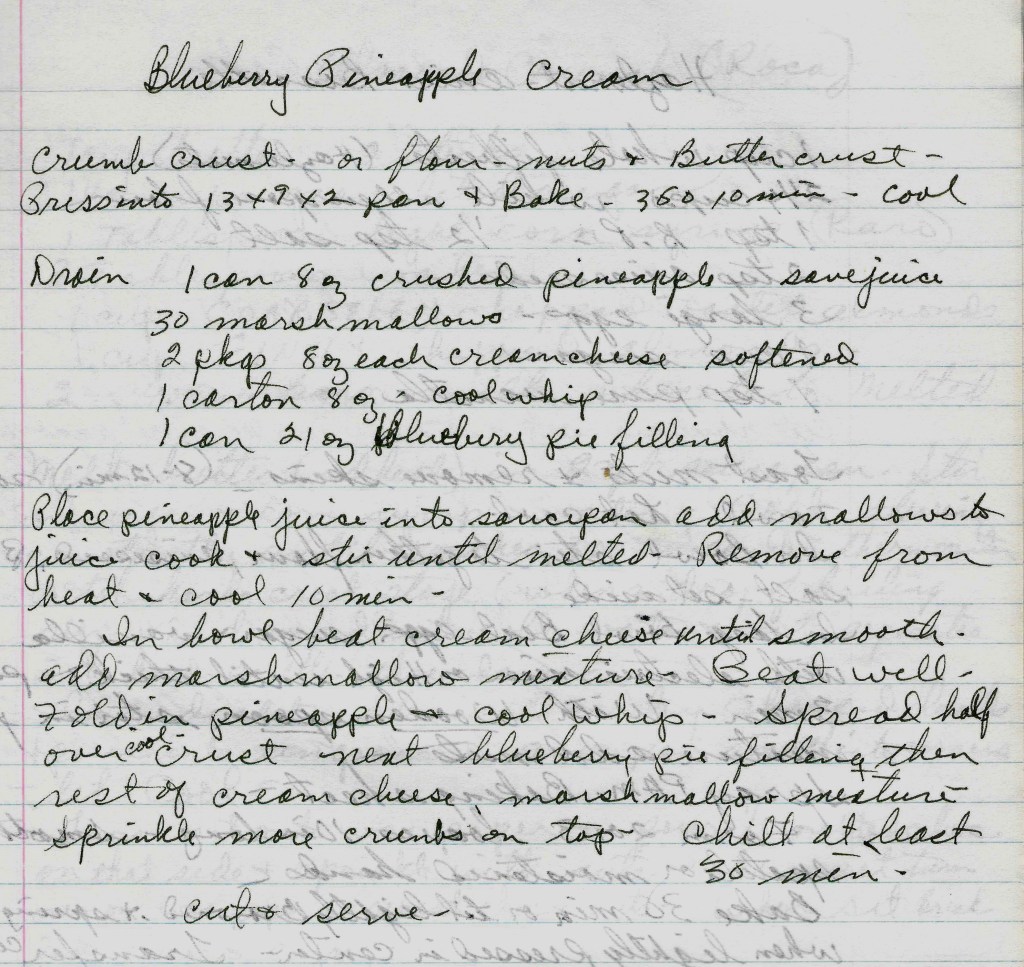 Blueberry Pineapple Cream
Crumb crust - or flour - nuts & Butter crust -
Press into 13x9x2 pan & Bake - 350 10 min - cool
Drain 1 can 8 oz crushed pineapple save juice
30 marshmallows
2 pkgs 8 oz each creamcheese softened
1 carton 8 oz - cool whip
1 can 21 oz blueberry pie filling
Place pineapple juice into saucepan add mallows to
juice cook & stir until melted - Remove from
heat & cool 10 min -
In bowl beat cream cheese until smooth -
add marshmallow mixture - Beat well -
Fold in pineapple & cool whip - Spread half
over cool crust next blueberry pie filling then
rest of cream cheese, marshmallow mixture
sprinkle more crumbs on top - Chill at least
30 min -
cut & serve -